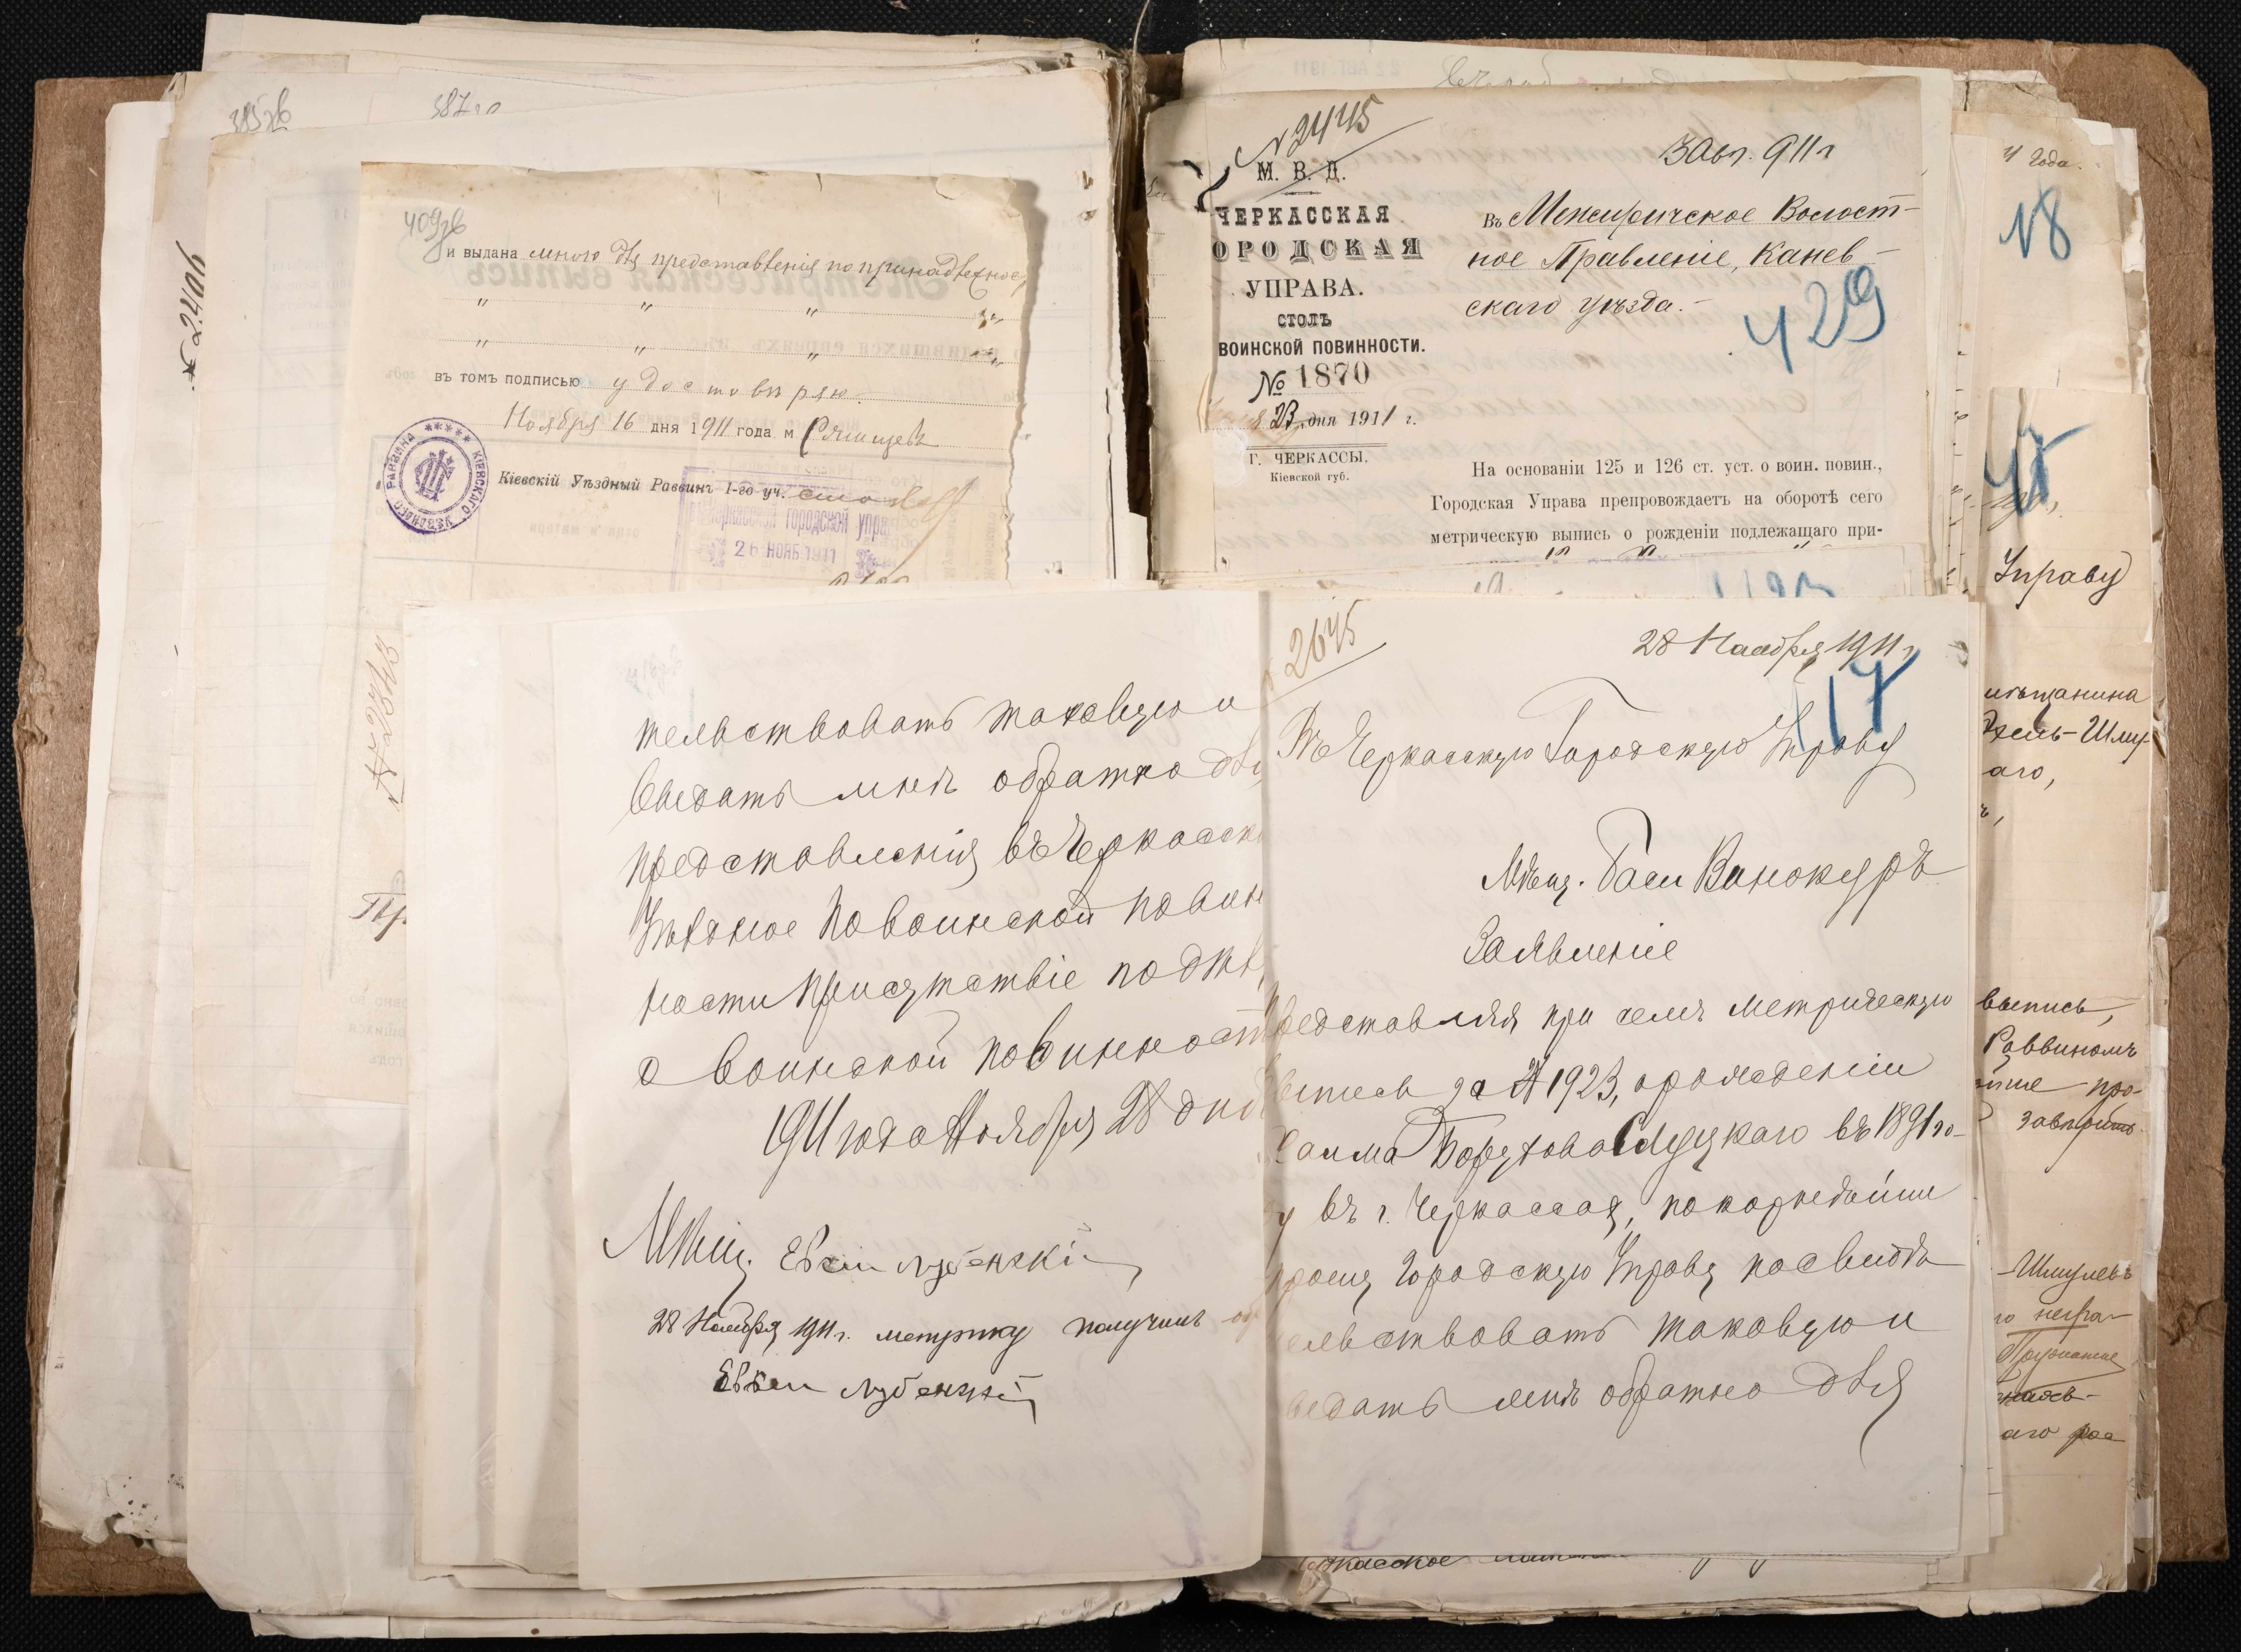 385 зв
387
№ 2406
409 зв
и выдана много для представленія по принадлежнос
" " " "
" " " "
въ томъ подписью удостовѣряю.
Ноября 16 дня 1911 года м Ржищевъ
Кіевскій Уѣздный Раввинъ 1-го уч.
РАВВИНА КІЕВСКАГО УѢЗДНАГО
Черкасской городской управ
26 НОЯБ 1911
№ 2445
М. В. Д.
ЧЕРКАССКАЯ
ОРОДСКАЯ
УПРАВА.
СТОЛЪ
ВОИНСКОЙ ПОВИННОСТИ.
№ 1870
23 дня 1911 г.
Г. ЧЕРКАССЫ.
Кіевской губ.
3 Авг. 911 г
Въ Межиричское Волост-
ное Правленіе, Канев-
скаго уѣзда.-
429
На основаніи 125 и 126 ст. уст. о воин. повин.,
Городская Управа препровождаетъ на оборотѣ сего
метрическую выпись о рожденіи подлежащаго при-
тельствовать таковую и
выдать мнѣ обратно для
представленія въ Черкасск
Уѣздное по воинской повин
ности присутствіе по дѣл
о воинской повинност
1911 года Ноября 28 дня
Мѣщ. Евсей Лубенскій
28 Ноября 1911 г. метрику получилъ
Евсей Лубенскій
2645
28 Ноября 1911 г
417
Въ Черкасскую Городскую Управу
Мѣщ. Баси Винокуръ
Заявленіе
редставляя при семъ метрическую
выпись за № 1923, о рожденіи
Хаима Борухова Слуцкаго въ 1891 го-
ду въ г. Черкассах, покорнейше
прошу Городскую Управу посвидѣ
тельствовать таковую и
выдать мнѣ обратно для
года.
№8
Управу
мѣщанина
-Шму-
аго,
выпись,
Раввиномъ
про-
завѣрить
-Шмулевъ
негра-
аго рас